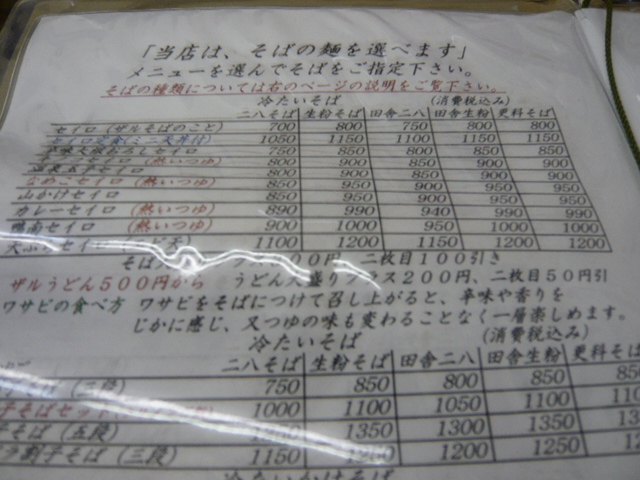 「当店は、そばの麺を選べます」
メニューを選んでそばをご指定下さい。
そばの種類については右のページの説明をご覧下さい。
冷たいそば (消費税込み)
二八そば 生粉そば 田舎二八 田舎生粉 更科そば
セイロ(ザルそばのこと) 700 800 750 800 800
セイロ定食(ミニ天丼付) 1050 1150 1100 1150 1150
セイロ 750 850 800 850 850
セイロ(熱いつゆ) 800 900 850 900 900
セイロ 800 900 850 900 900
なめこセイロ(熱いつゆ) 850 950 900 950 950
山かけセイロ 850 950 900 950 950
カレーセイロ(熱いつゆ) 890 990 940 990 990
鴨南セイロ(熱いつゆ) 900 1000 950 1000 1000
天ぷらセイロ 1100 1200 1150 1200 1200
そば 二枚目100引き
ザルうどん500円から うどん大盛りプラス200円、二枚目50円引
ワサビの食べ方 ワサビをそばにつけて召し上がると、辛味や香りを
じかに感じ、又つゆの味も変わることなく一層楽しめます。
冷たいそば (消費税込み)
二八そば 生粉そば 田舎二八 田舎生粉 更科そば
(三段) 750 850 800 850 850
子そばセット 1000 1100 1050 1100
子そば(五段) 1350 1300 1350
割子そば(三段) 1150 1200 1250